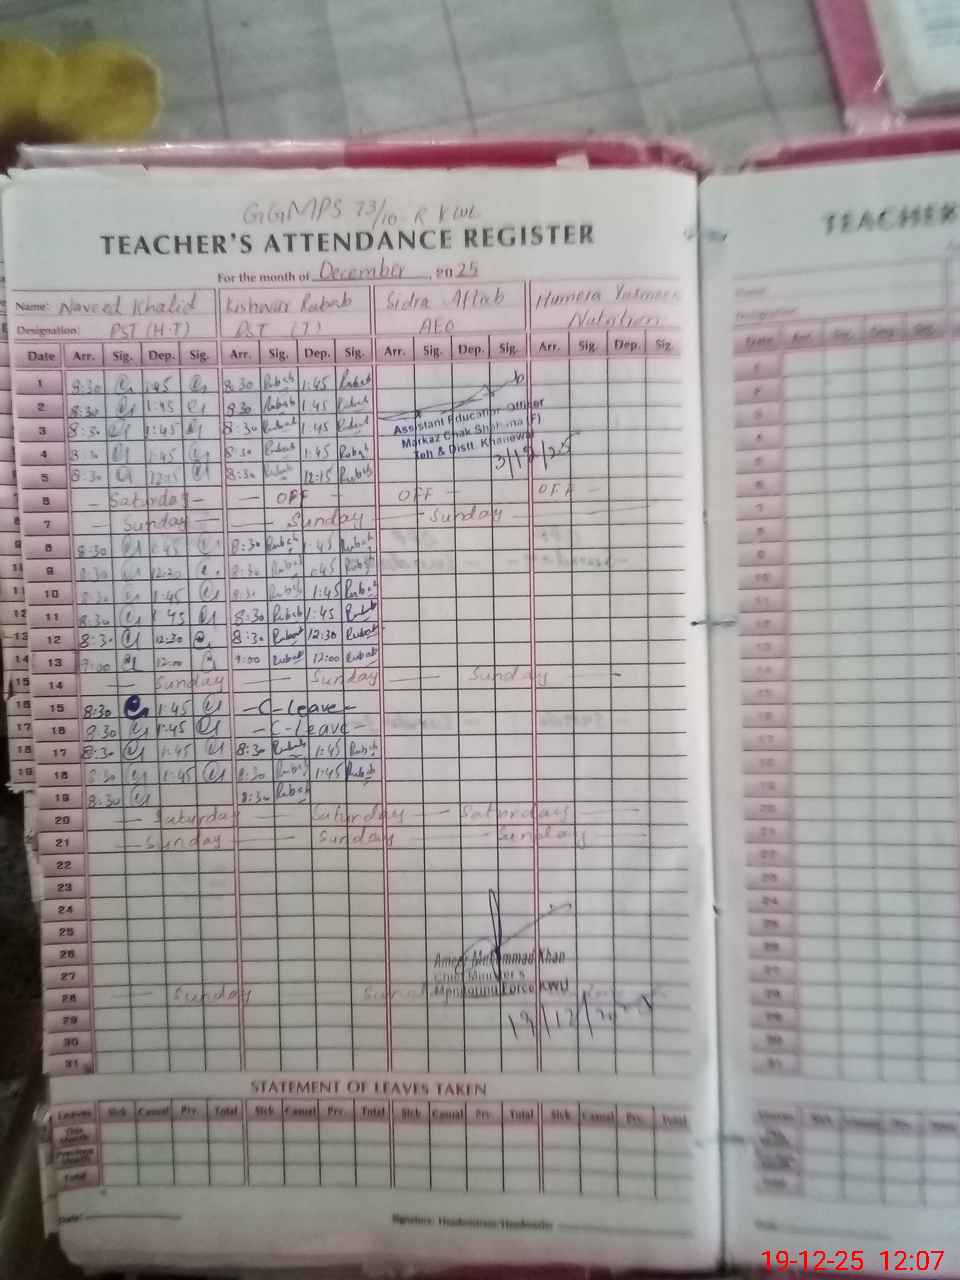 GGMPS 73/10-R KWL
TEACHER'S ATTENDANCE REGISTER
TEACHER
For the month of December, 2025
Name: Naveed Khalid Kishwar Rubab Sidra Aftab Humera Yasmeen
Designation: PST (H.T) PST (T) AEO Nutrition
Date Arr. Sig. Dep. Sig. Arr. Sig. Dep. Sig. Arr. Sig. Dep. Sig. Arr. Sig. Dep. Sig.
1 8:30 1:45 8:30 Rubab 1:45 Rubab
2 8:30 1:45 8:30 Rubab 1:45 Rubab
3 8:30 1:45 8:30 Rubab 1:45 Rubab
Assistant Education Officer
Markaz Chak Shahana (F)
Teh & Distt. Khanewal
3/12/25
4 8:30 1:45 8:30 Rubab 1:45 Rubab
5 8:30 12:15 8:30 Rubab 12:15 Rubab
6 - Saturday - - OFF - OFF - OFF -
7 - Sunday - - Sunday - Sunday -
8 8:30 1:45 8:30 Rubab 1:45 Rubab
9 8:30 12:30 8:30 Rubab 1:45 Rubab
10 8:30 1:45 8:30 Rubab 1:45 Rubab
11 8:30 1:45 8:30 Rubab 1:45 Rubab
12 8:30 12:30 8:30 Rubab 12:30 Rubab
13 9:00 12:00 9:00 Rubab 12:00 Rubab
14 - Sunday - Sunday - Sunday -
15 8:30 1:45 - C-leave -
16 8:30 1:45 - C-leave -
17 8:30 1:45 8:30 Rubab 1:45 Rubab
18 8:30 1:45 8:30 Rubab 1:45 Rubab
19 8:30 8:30 Rubab
20 - Saturday - Saturday - Saturday -
21 - Sunday - Sunday - Sunday -
22
23
24
25
26
27
28 - Sunday
Muhammad Khan
Chief Minister's
Monitoring Force KWL
19/12/2025
29
30
31
STATEMENT OF LEAVES TAKEN
Leaves Sick Casual Prv. Total Sick Casual Prv. Total Sick Casual Prv. Total Sick Casual Prv. Total
This Month
Previous Month
Total
Date: Signature: Headmistress/Headmaster
19-12-25 12:07